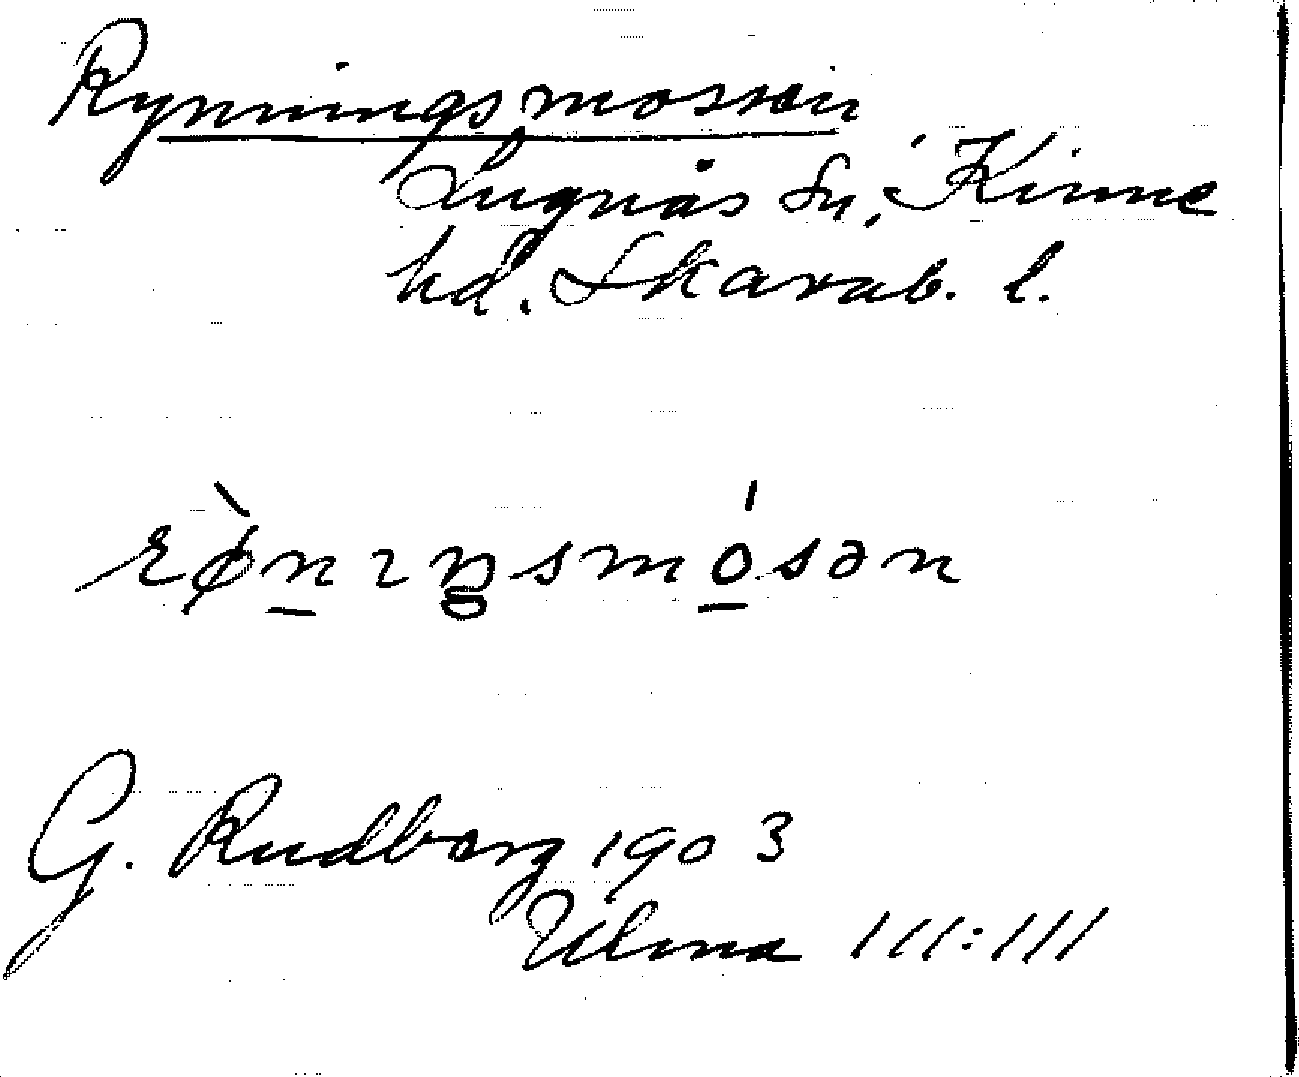 Rynningsmossen
Lugnås sn, Kinne
hd. Skarab. l.
rø̀nıŋsmósən
G. Rudberg 1903
Ulma 111:111